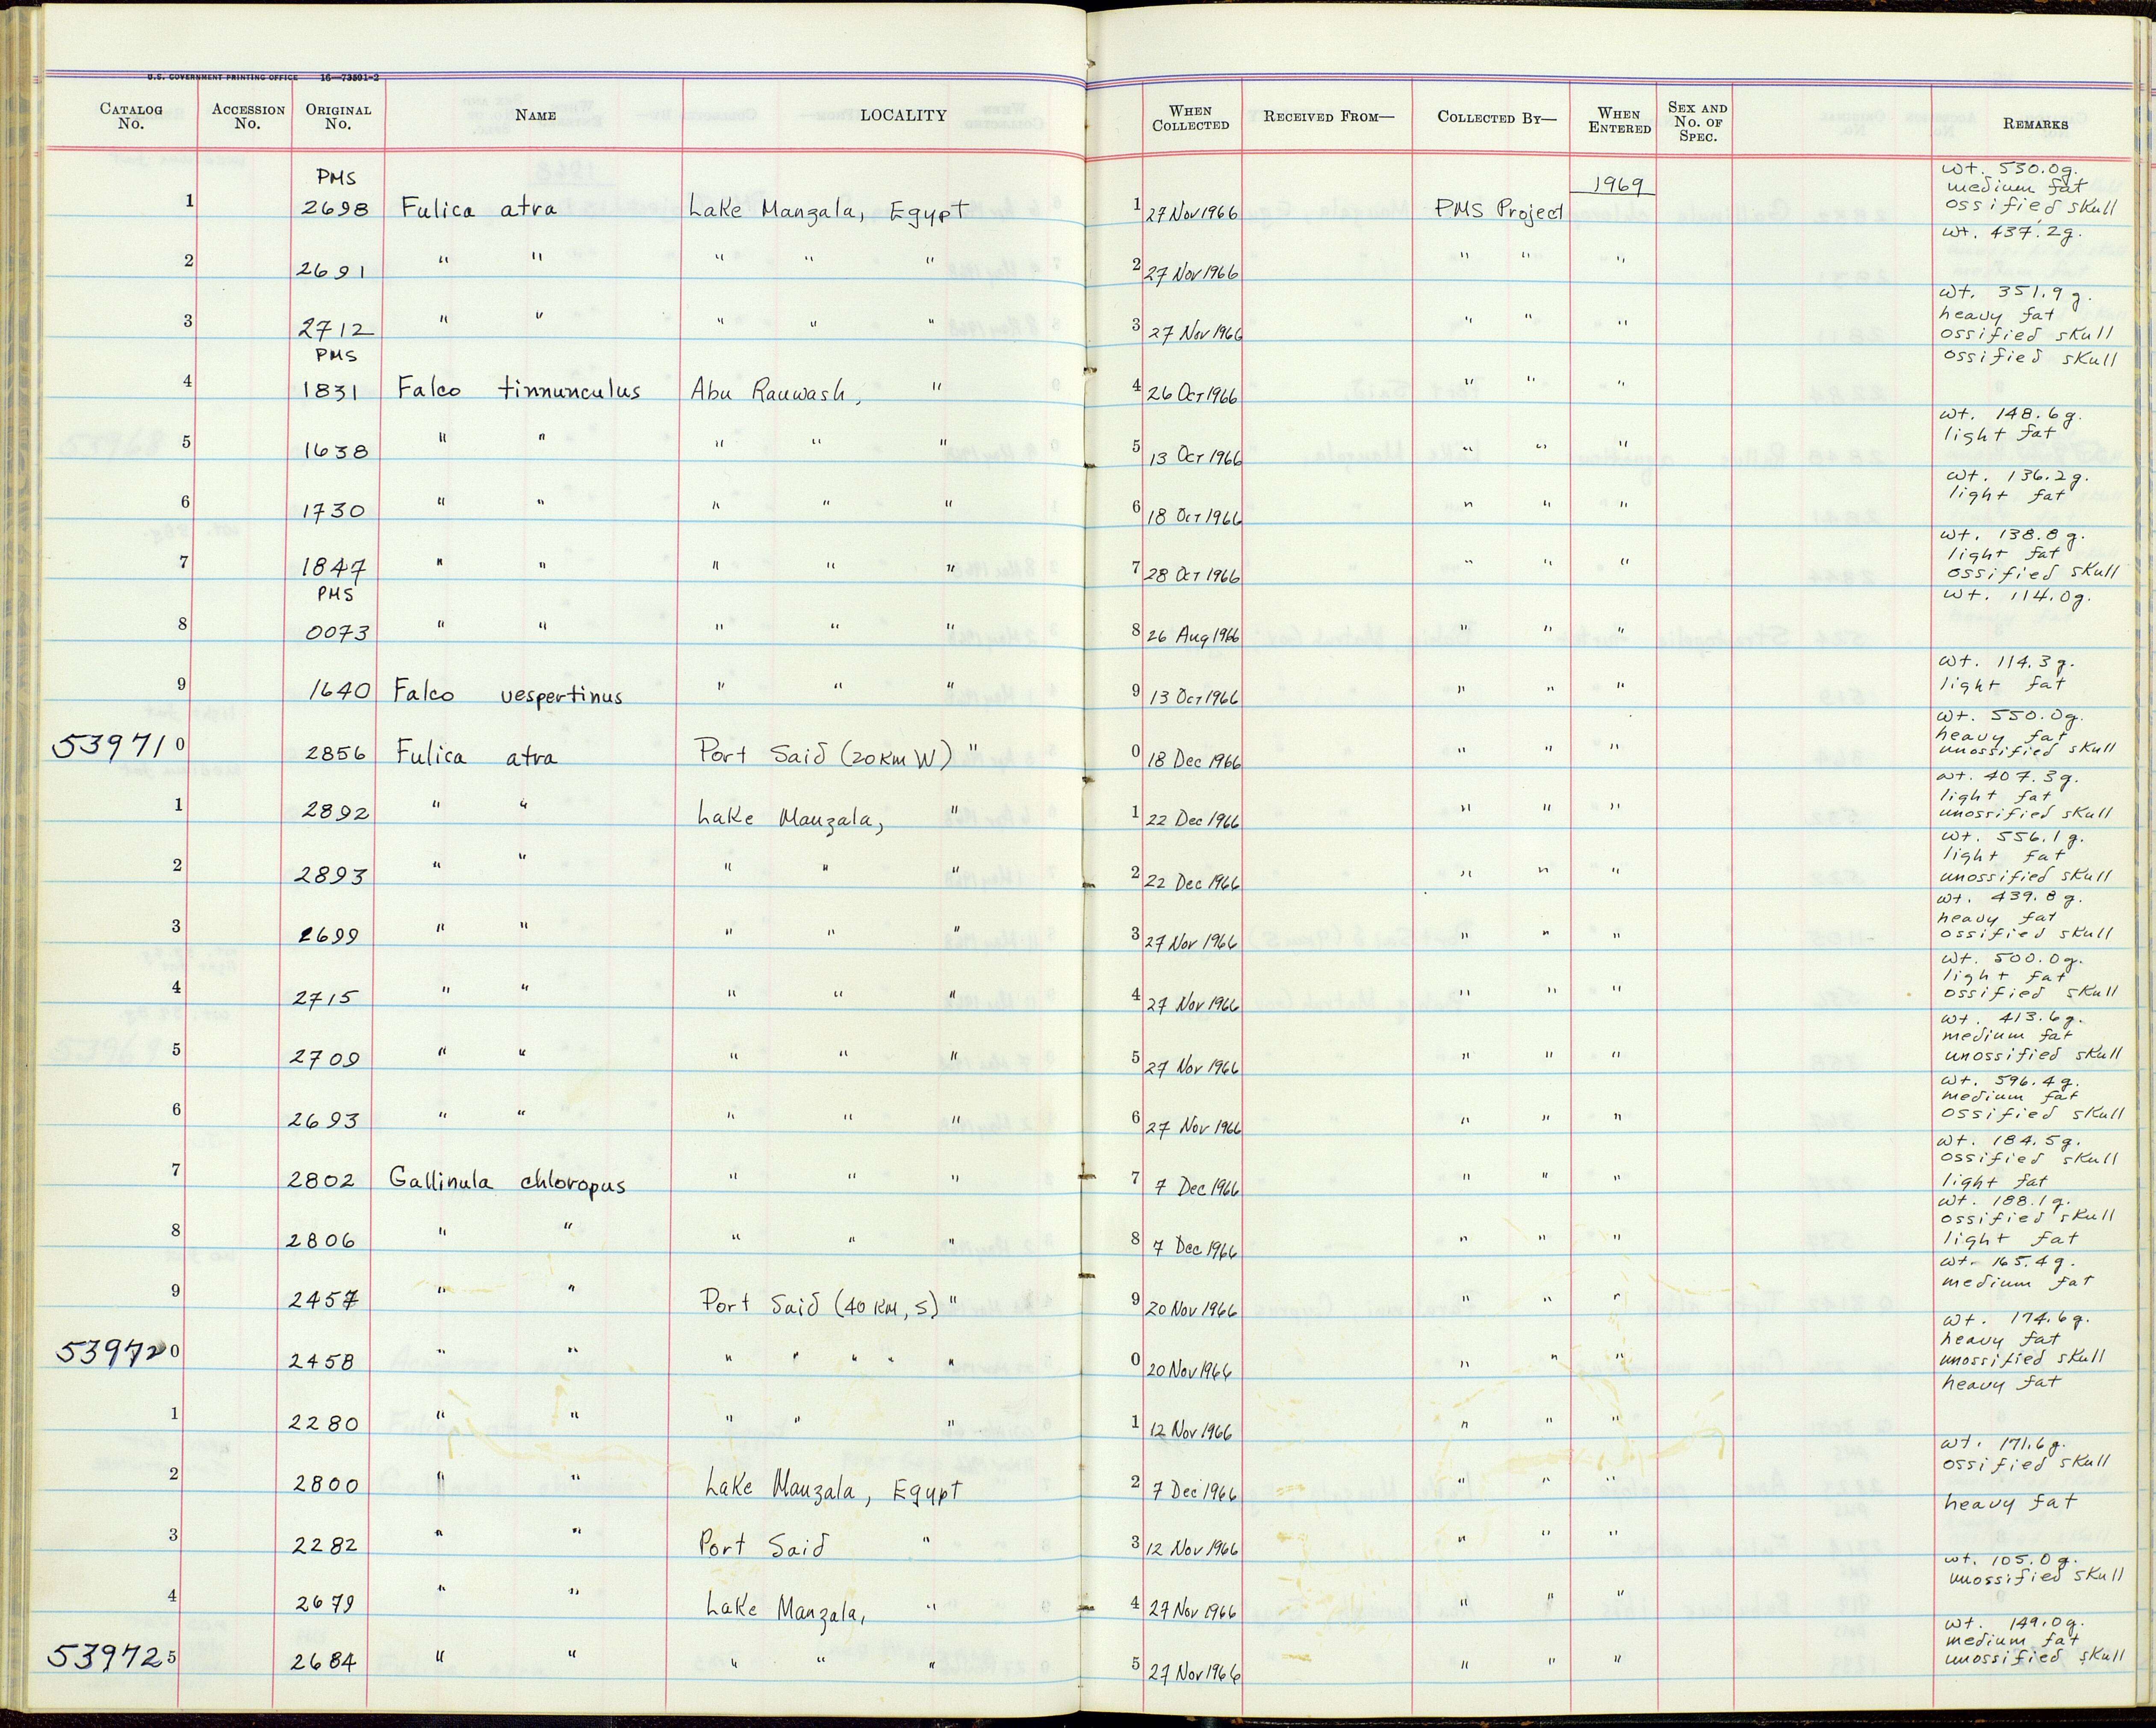 U.S. GOVERNMENT PRINTING OFFICE 16—73591-2
CATALOG No. ACCESSION No. ORIGINAL No. NAME LOCALITY WHEN COLLECTED RECEIVED FROM— COLLECTED BY— WHEN ENTERED SEX AND No. OF SPEC. REMARKS
PMS 1969 wt. 530.0g.
medium fat
1 2698 Fulica atra Lake Manzala, Egypt 1 27 Nov 1966 PMS Project ossified skull
wt. 437.2g.
2 2691 " " " " " 2 27 Nov 1966 " " "
wt. 351.9g.
heavy fat
3 2712 " " " " " 3 27 Nov 1966 " " " ossified skull
PMS ossified skull
4 1831 Falco tinnunculus Abu Rauwash, " 4 26 Oct 1966 " " "
wt. 148.6g.
5 1638 " " " " " 5 13 Oct 1966 " " " light fat
wt. 136.2g.
6 1730 " " " " " 6 18 Oct 1966 " " " light fat
wt. 138.8g.
light fat
7 1847 " " " " " 7 28 Oct 1966 " " " ossified skull
PMS wt. 114.0g.
8 0073 " " " " " 8 26 Aug 1966 " " "
wt. 114.3g.
9 1640 Falco vespertinus " " " 9 13 Oct 1966 " " " light fat
wt. 550.0g.
heavy fat
539710 2856 Fulica atra Port Said (20 km W) " 0 18 Dec 1966 " " " unossified skull
wt. 407.3g.
light fat
1 2892 " " Lake Manzala, " 1 22 Dec 1966 " " " unossified skull
wt. 556.1g.
light fat
2 2893 " " " " " 2 22 Dec 1966 " " " unossified skull
wt. 439.8g.
heavy fat
3 2699 " " " " " 3 27 Nov 1966 " " " ossified skull
wt. 500.0g.
light fat
4 2715 " " " " " 4 27 Nov 1966 " " " ossified skull
wt. 413.6g.
medium fat
5 2709 " " " " " 5 27 Nov 1966 " " " unossified skull
wt. 596.4g.
medium fat
6 2693 " " " " " 6 27 Nov 1966 " " " ossified skull
wt. 184.5g.
ossified skull
7 2802 Gallinula chloropus " " " 7 7 Dec 1966 " " " light fat
wt. 188.1g.
ossified skull
8 2806 " " " " " 8 7 Dec 1966 " " " light fat
wt. 165.4g.
medium fat
9 2457 " " Port Said (40 KM, S) " 9 20 Nov 1966 " " "
wt. 174.6g.
heavy fat
539720 2458 " " " " " " " 0 20 Nov 1966 " " " unossified skull
heavy fat
1 2280 " " " " " 1 12 Nov 1966 " " "
wt. 171.6g.
ossified skull
2 2800 " " Lake Manzala, Egypt 2 7 Dec 1966 " " "
heavy fat
3 2282 " " Port Said " 3 12 Nov 1966 " " "
wt. 105.0g.
unossified skull
4 2679 " " Lake Manzala, " 4 27 Nov 1966 " " "
wt. 149.0g.
medium fat
539725 2684 " " " " " 5 27 Nov 1966 " " " unossified skull